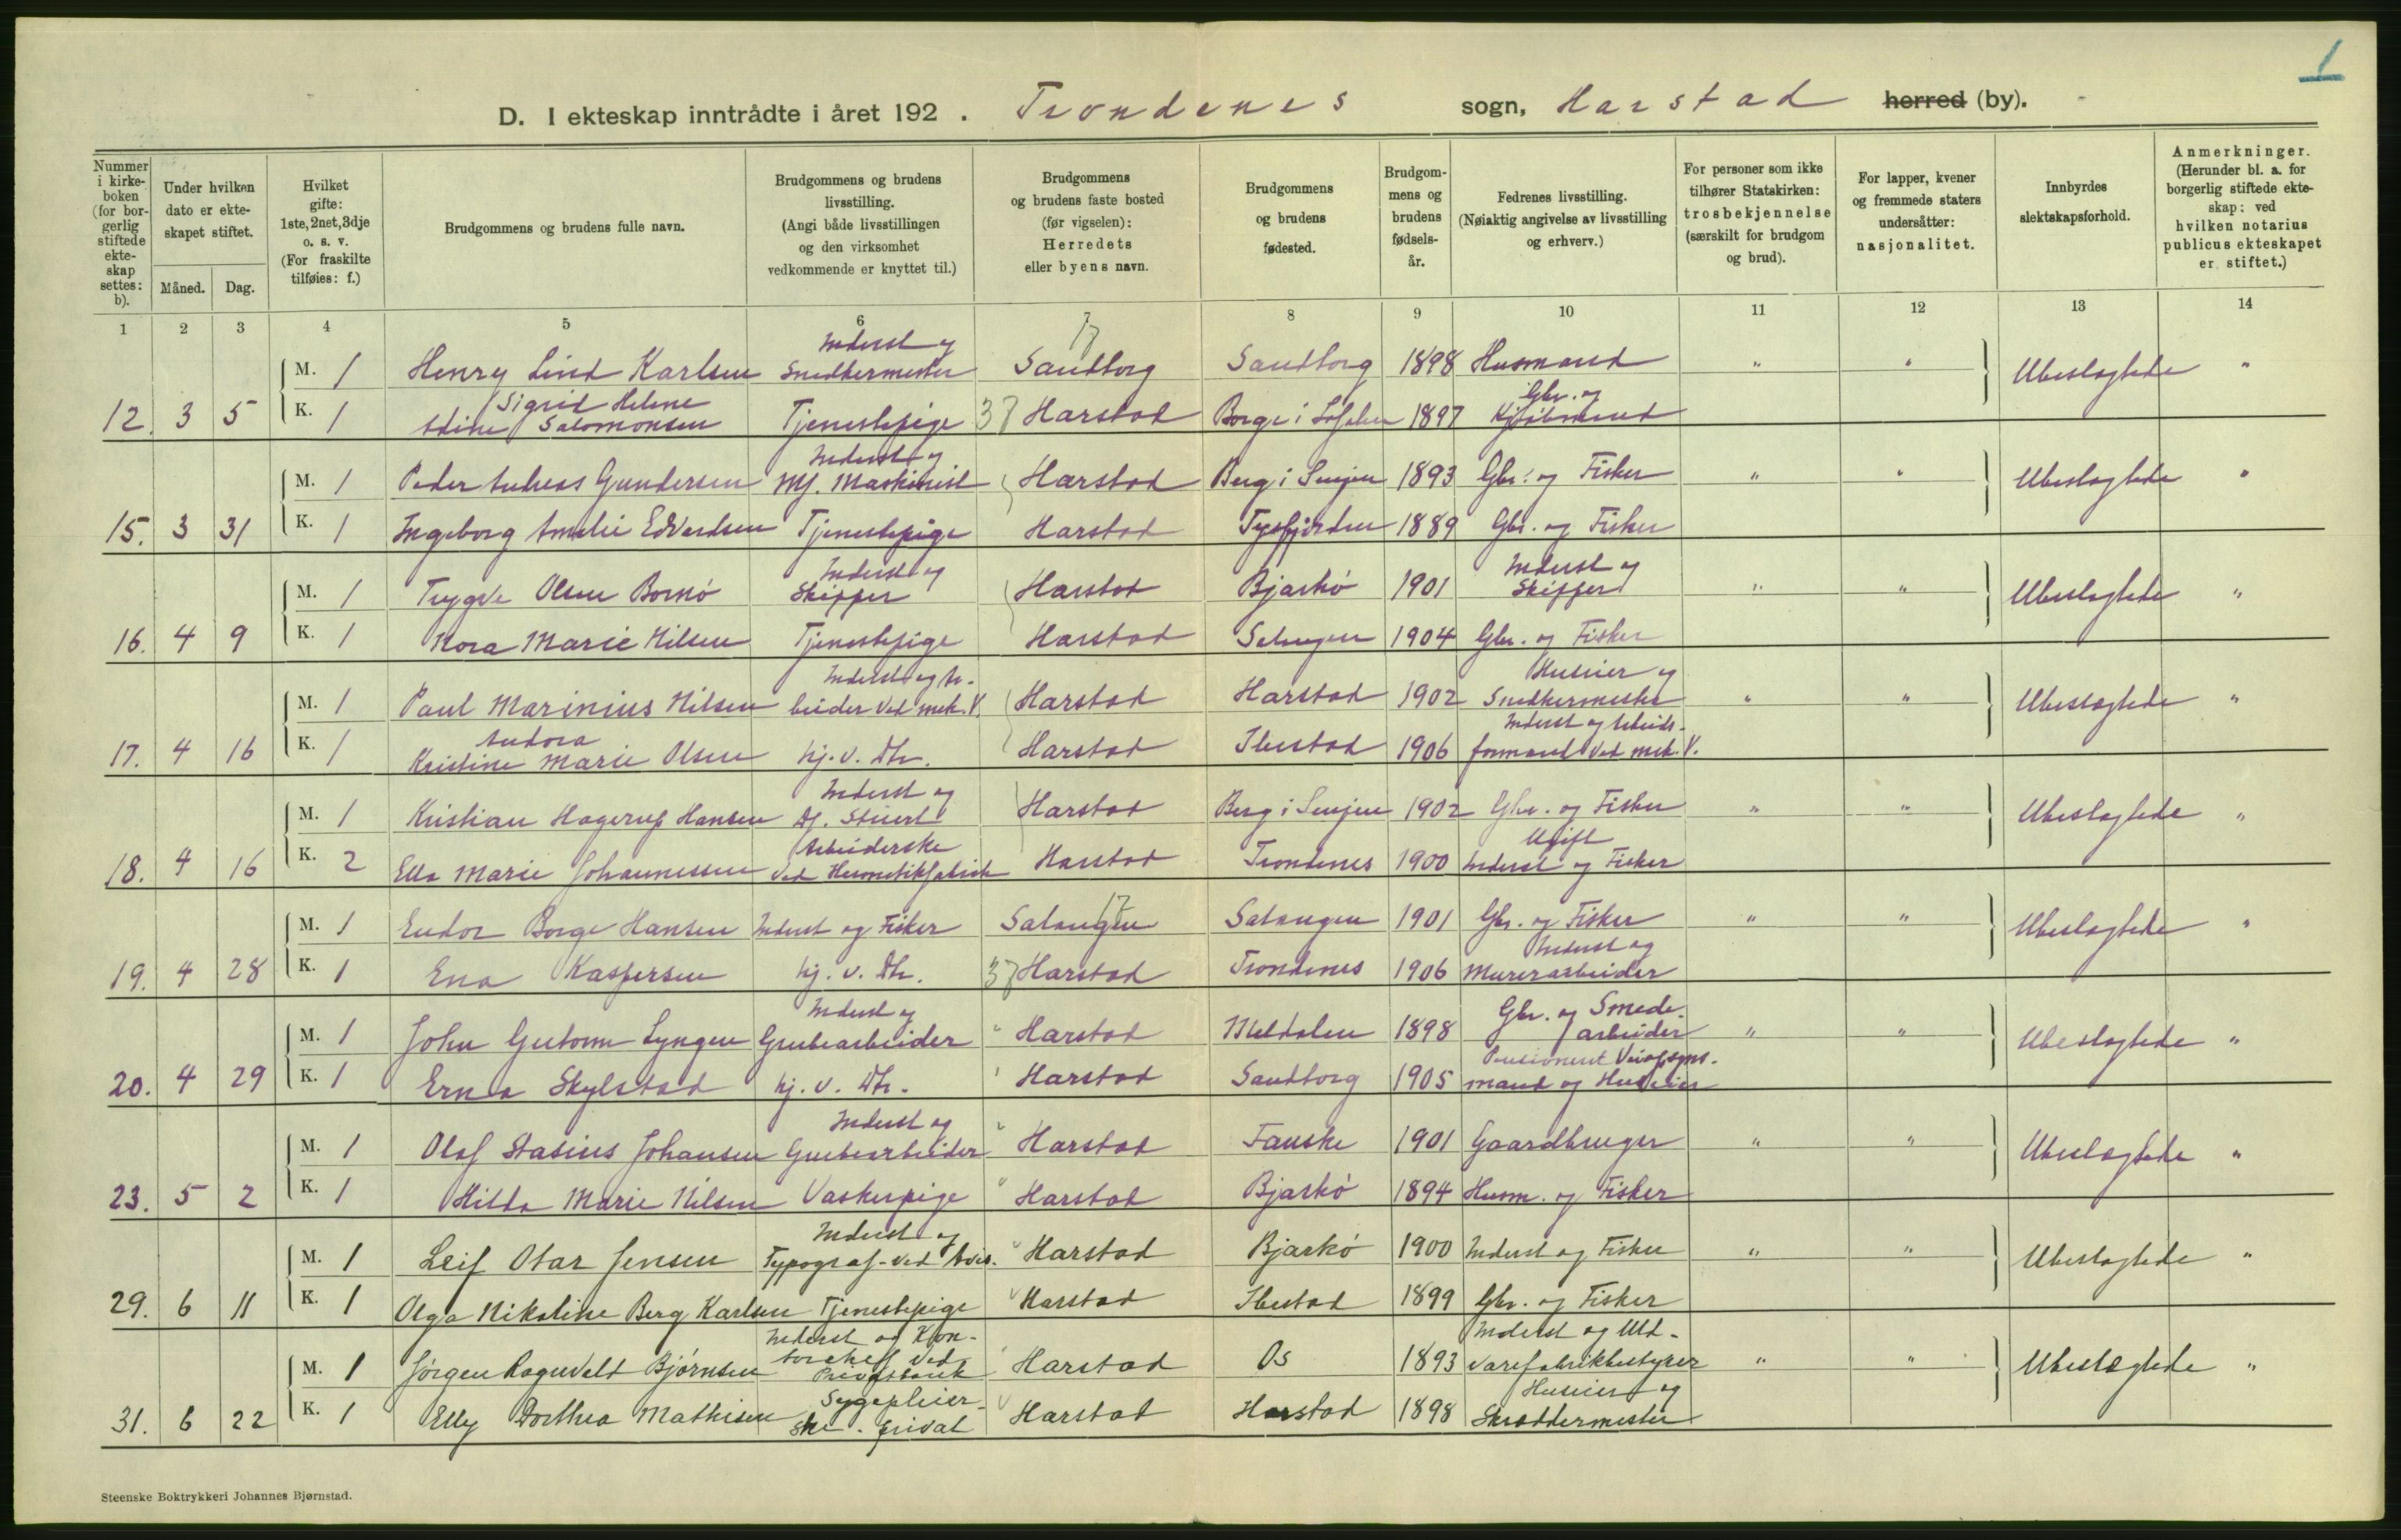 1
D. I ekteskap inntrådte i året 192 . Trondenes sogn, Harstad herred (by).
Nummer i kirkeboken (for borgerlig stiftede ekteskap settes: b).
Under hvilken dato er ekteskapet stiftet.
Måned. Dag.
Hvilket gifte: 1ste, 2net, 3dje o. s. v. (For fraskilte tilføies: f.)
Brudgommens og brudens fulle navn.
Brudgommens og brudens livsstilling. (Angi både livsstillingen og den virksomhet vedkommende er knyttet til.)
Brudgommens og brudens faste bosted (før vigselen): Herredets eller byens navn.
Brudgommens og brudens fødested.
Brudgommens og brudens fødselsår.
Fedrenes livsstilling. (Nøiaktig angivelse av livsstilling og erhverv.)
For personer som ikke tilhører Statskirken: trosbekjennelse (særskilt for brudgom og brud).
For lapper, kvener og fremmede staters undersåtter: nasjonalitet.
Innbyrdes slektskapsforhold.
Anmerkninger. (Herunder bl. a. for borgerlig stiftede ekteskap: ved hvilken notarius publicus ekteskapet er stiftet.)
1 2 3 4 5 6 7 8 9 10 11 12 13 14
M. 1 Henry Lind Karlsen Inderst og Snedkermester 17 Sandtorg Sandtorg 1898 Husmand " " Ubeslagtede "
12. 3 5 K. 1 Sigrid Helene Adine Salomonsen Tjenestepige 37 Harstad Borge i Lofoten 1897 Gbr. og Kjøbmand
M. 1 Peder Andreas Gundersen Inderst og Mj. Maskinist Harstad Berg i Senjen 1893 Gbr. og Fisker " " Ubeslagtede "
15. 3 31 K. 1 Ingeborg Amalie Edvardsen Tjenestepige Harstad Tysfjorden 1889 Gbr. og Fisker
M. 1 Trygve Olsen Bornø Inderst og Skipper Harstad Bjarkö 1901 Inderst og Skipper " " Ubeslagtede "
16. 4 9 K. 1 Nora Marie Nilsen Tjenestepige Harstad Salangen 1904 Gbr. og Fisker
M. 1 Paul Marinius Nilsen Inderst og Arbeider ved mek. V. Harstad Harstad 1902 Huseier og Snedkermester " " Ubeslagtede "
17. 4 16 K. 1 Andora Kristine Marie Olsen hj. v. Dtr. Harstad Ibestad 1906 Inderst og Arbeidsformand ved mek. V.
M. 1 Kristian Hagerup Hansen Inderst og Dj. Stuert Harstad Berg i Senjen 1902 Gbr. og Fisker " " Ubeslagtede "
18. 4 16 K. 2 Ella Marie Johannessen Arbeiderske ved Hermetikfabrik Harstad Trondenes 1900 Ugift Inderst og Fisker
M. 1 Eudor Borge Hansen Inderst og Fisker 17 Salangen Salangen 1901 Gbr. og Fisker " " Ubeslagtede "
19. 4 28 K. 1 Ena Kaspersen hj. v. Dtr. 37 Harstad Trondenes 1906 Inderst og Murerarbeider
M. 1 John Guttorm Lyngen Inderst og Grubearbeider " Harstad Meldalen 1898 Gbr. og Smedearbeider " " Ubeslagtede "
20. 4 29 K. 1 Erna Skylstad hj. v. Dtr. Harstad Sandtorg 1905 Pensioneret Veiopsynsmand og Huseier
M. 1 Olaf Stasius Johansen Inderst og Grubearbeider " Harstad Fauske 1901 Gaardbruger " " Ubeslagtede "
23. 5 2 K. 1 Hilda Marie Nilsen Vaskepige " Harstad Bjarkö 1894 Husm. og Fisker
M. 1 Leif Otar Jensen Inderst og Typograf ved Avis. Harstad Bjarkö 1900 Inderst og Fisker " " Ubeslagtede "
29. 6 11 K. 1 Olga Nikoline Berg Karlsen Tjenestepige Harstad Ibestad 1899 Gbr. og Fisker
M. 1 Jörgen Ragnvald Björnsen Inderst og Kontorchef ved Privatbank Harstad Os 1893 Inderst og Uldvarefabrikbestyrer " " Ubeslægtede "
31. 6 22 K. 1 Elly Dorthea Mathisen Sygepleierske. privat Harstad Harstad 1898 Huseier og Skræddermester
Steenske Boktrykkeri Johannes Bjørnstad.